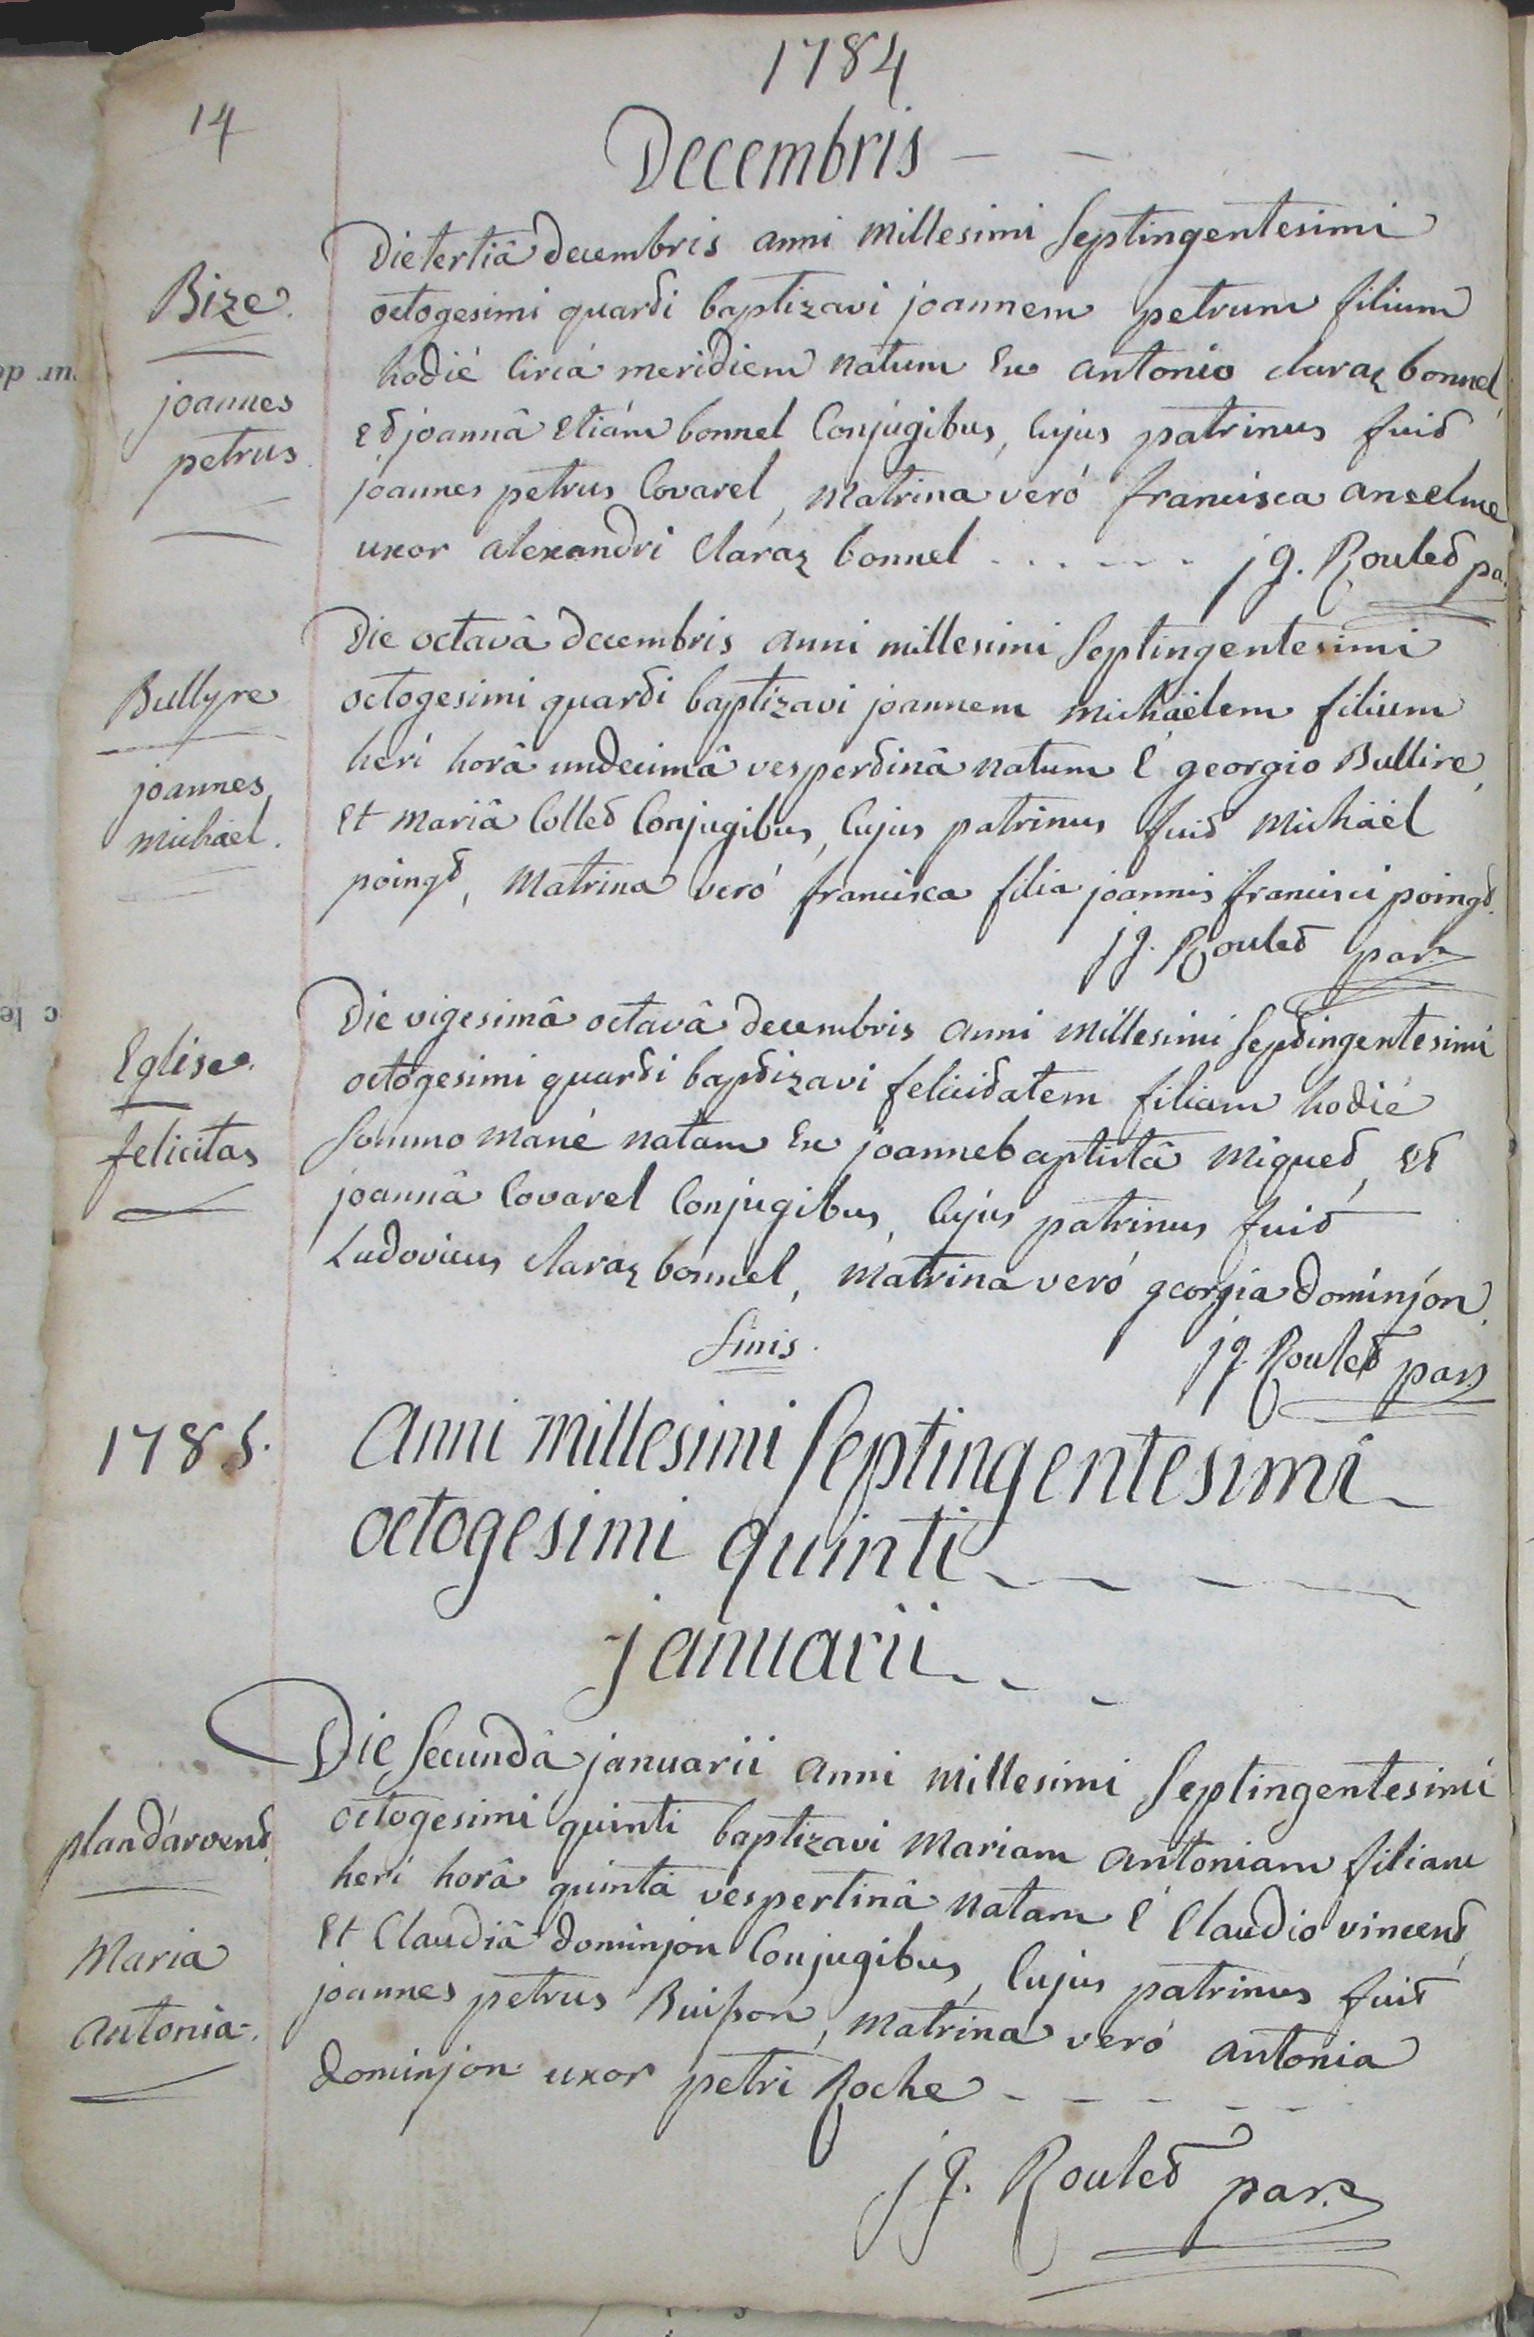 1784
14
Decembris
Die tertiâ decembris anni millesimi septingentesimi
Bize.
octogesimi quarti baptizavi joannem petrum filium
joannes
hodié circá meridiem natum ex antonio claraz bonnel,
petrus
et joannâ etiám bonnel conjugibus, cujus patrinus fuit
joannes petrus Covarel, matrina veró francisca anselme
uxor alexandri claraz bonnel ...... jg. Roulet pa.
Die octavâ decembris anni millesimi septingentesimi
Bullyre
octogesimi quarti baptizavi joannem michäelem filium
joannes
heri horâ undecimâ vespertinâ natum é georgio Bullire,
michäel.
et mariâ Collet conjugibus, cujus patrinus fuit michäel
poingt, matrina veró francisca filia joannis francisci poingt.
jg. Roulet par.
Die vigesimâ octavâ decembris anni millesimi septingentesimi
Eglise.
octogesimi quarti baptizavi felicitatem filiam hodié
felicitas
summo mané natam ex joannebaptistâ miquet, et
joannâ Covarel conjugibus, cujus patrinus fuit
Ludovicus claraz bonnel, matrina veró georgia dominjon.
finis.
jg. Roulet par.
1785.
Anni millesimi septingentesimi
octogesimi quinti
januarii
Die secundâ januarii anni millesimi septingentesimi
plandarvent.
octogesimi quinti baptizavi mariam antoniam filiam
heri horâ quintâ vespertinâ natam é Claudio vincent,
Maria
et Claudiâ dominjon conjugibus, cujus patrinus fuit
antonia.
joannes petrus Buisson, matrina veró antonia
dominjon uxor petri Roche
jg. Roulet par.